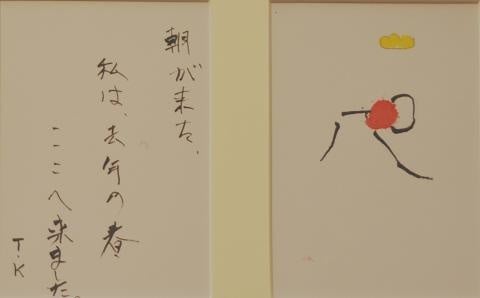 朝が来た、
私は、去年の春
ここへ来ました。
T.K